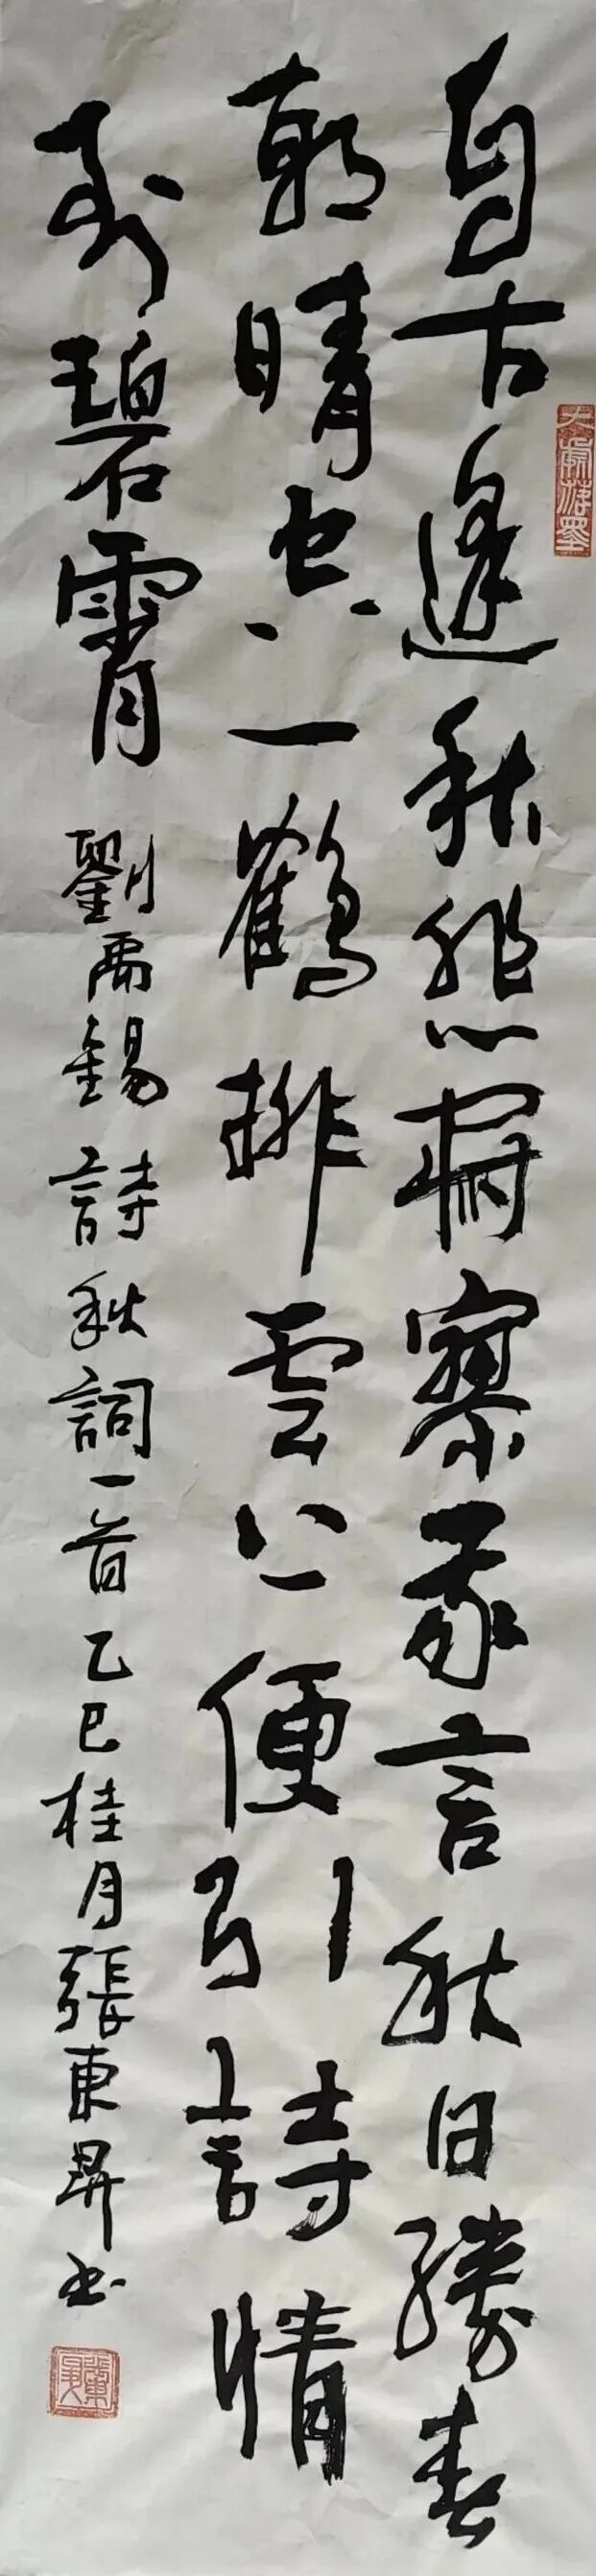 自古逢秋悲寂寥我言秋日勝春
朝晴空一鶴排雲上便引詩情
到碧霄 劉禹錫詩秋詞一首乙巳桂月張東昇书